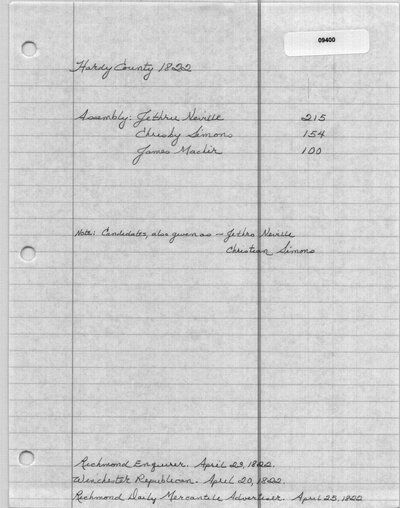 09400
Hardy County 1822
Assembly: Jethrie Neville 215
Chrisby Simons 154
James Machir 100
Note: Candidates, also given as — Jethro Neville
Christian Simons
Richmond Enquirer. April 23, 1822.
Winchester Republican. April 20, 1822.
Richmond Daily Mercantile Advertiser. April 25, 1822